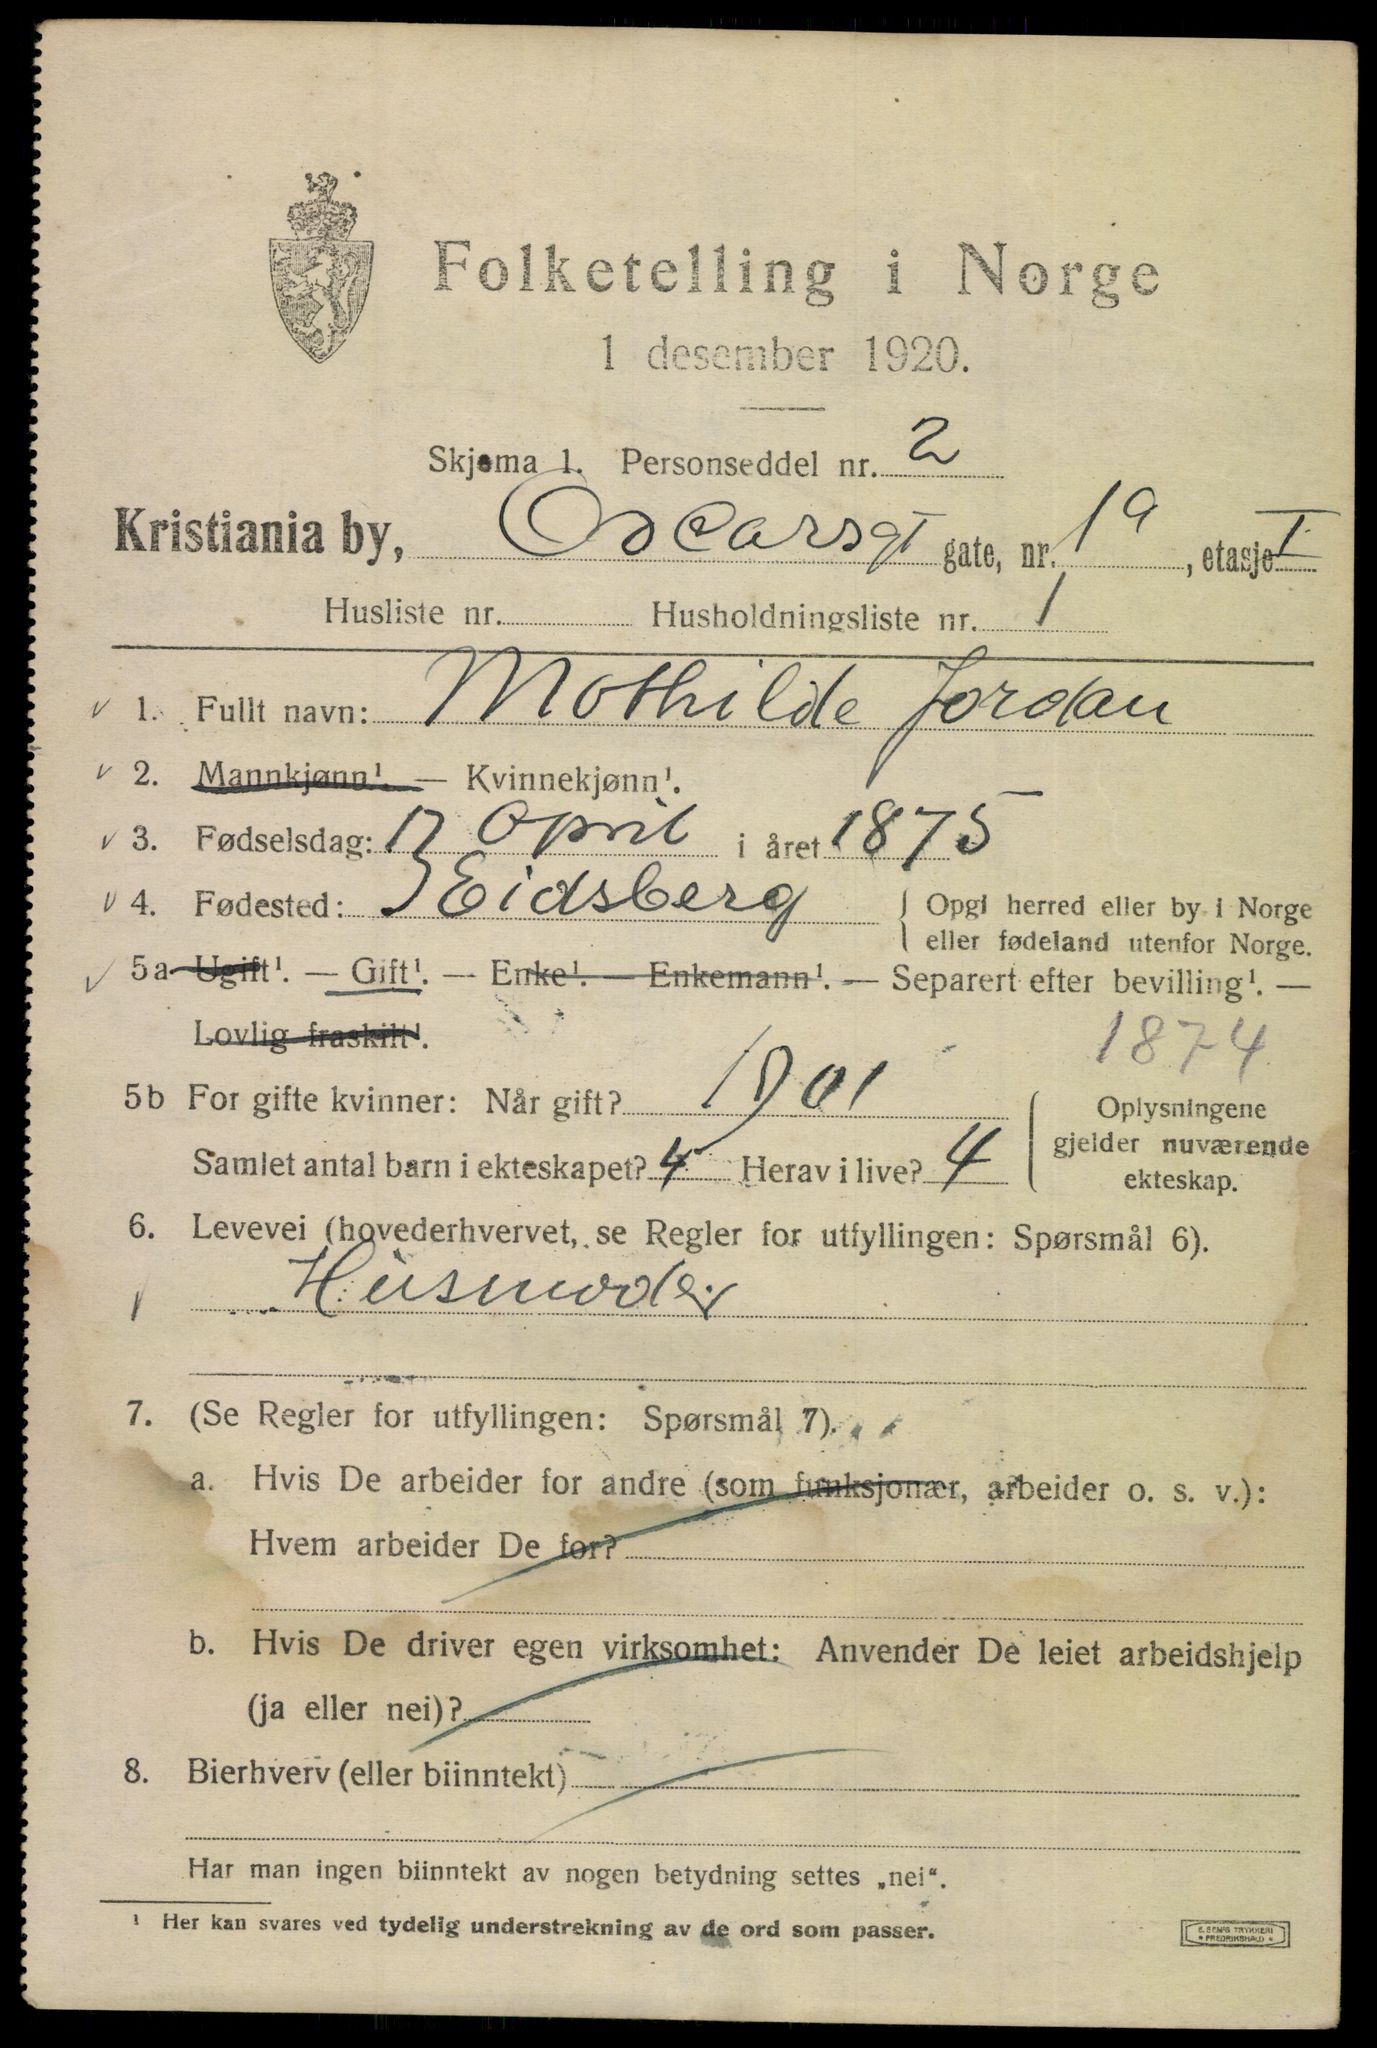 Folketelling i Norge
1 desember 1920.
Skjema 1. Personseddel nr. 2
Kristiania by, Oscarsgt gate, nr. 1a, etasje I
Husliste nr. Husholdningsliste nr. 1
1. Fullt navn: Mathilde Jordan
2. Mannkjønn¹. — Kvinnekjønn¹.
3. Fødselsdag: 17 April i året 1875
4. Fødested: Eidsberg { Opgi herred eller by i Norge
eller fødeland utenfor Norge.
5a Ugift¹. — Gift¹. — Enke¹. — Enkemann¹. — Separert efter bevilling¹. —
Lovlig fraskilt¹.
1874
5b For gifte kvinner: Når gift? 1901
Samlet antal barn i ekteskapet? 4 Herav i live? 4
{ Oplysningene
gjelder nuværende
ekteskap.
6. Levevei (hovederhvervet, se Regler for utfyllingen: Spørsmål 6).
Husmoder
7. (Se Regler for utfyllingen: Spørsmål 7).
a. Hvis De arbeider for andre (som funksjonær, arbeider o. s. v.):
Hvem arbeider De for?
b. Hvis De driver egen virksomhet: Anvender De leiet arbeidshjelp
(ja eller nei)?
8. Bierhverv (eller biinntekt)
Har man ingen biinntekt av nogen betydning settes „nei“.
¹ Her kan svares ved tydelig understrekning av de ord som passer.
E. SEMS TRYKKERI
• FREDRIKSHALD •